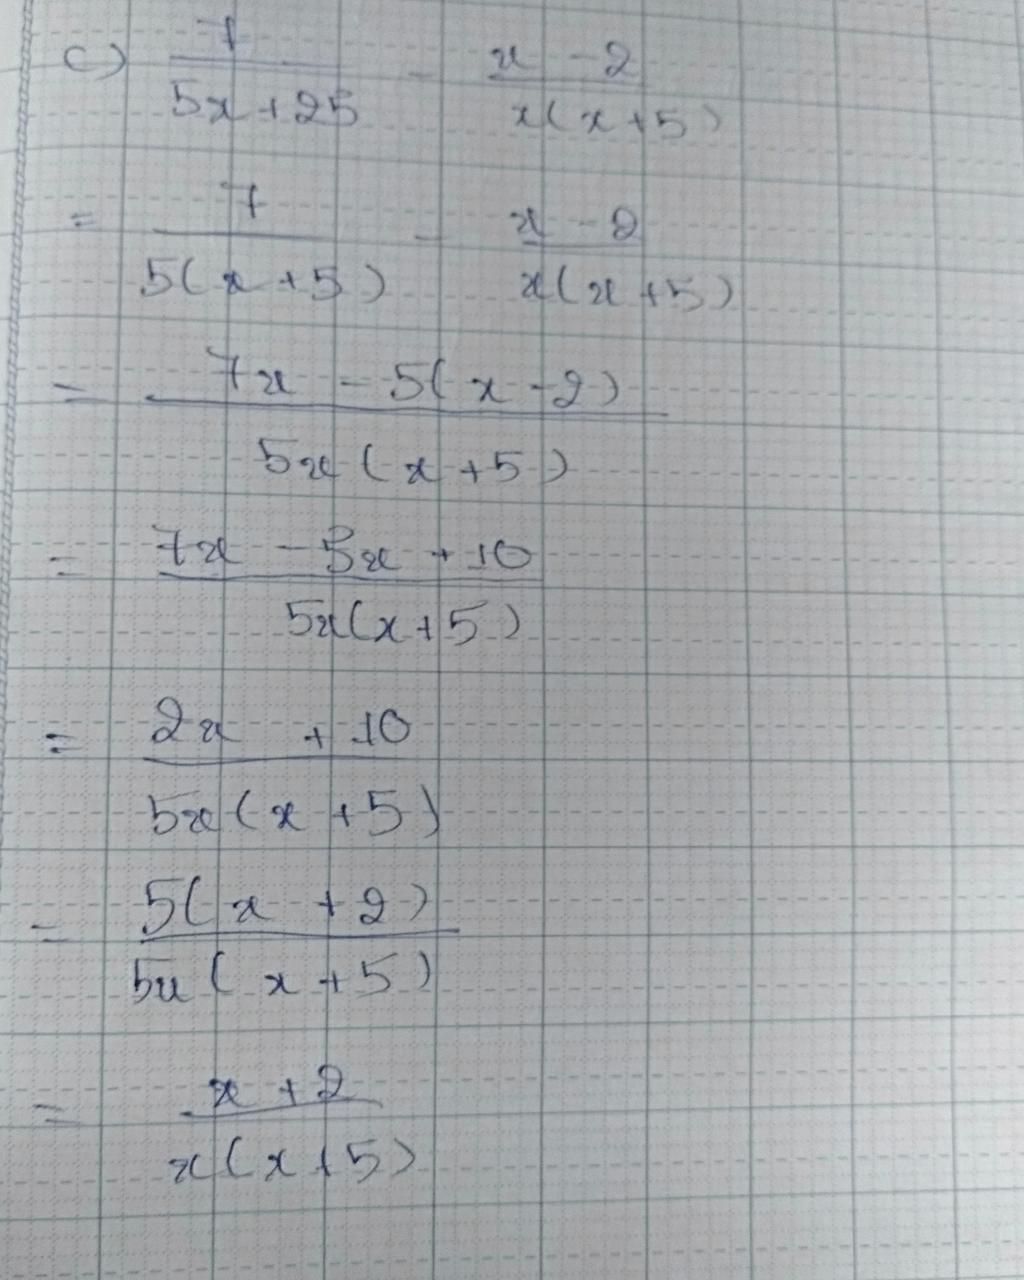 c) 7/(5x+25) - (x-2)/(x(x+5))
= 7/(5(x+5)) - (x-2)/(x(x+5))
= (7x - 5(x-2))/(5x(x+5))
= (7x - 5x + 10)/(5x(x+5))
= (2x + 10)/(5x(x+5))
= 5(x+2)/(5x(x+5))
= (x+2)/(x(x+5))